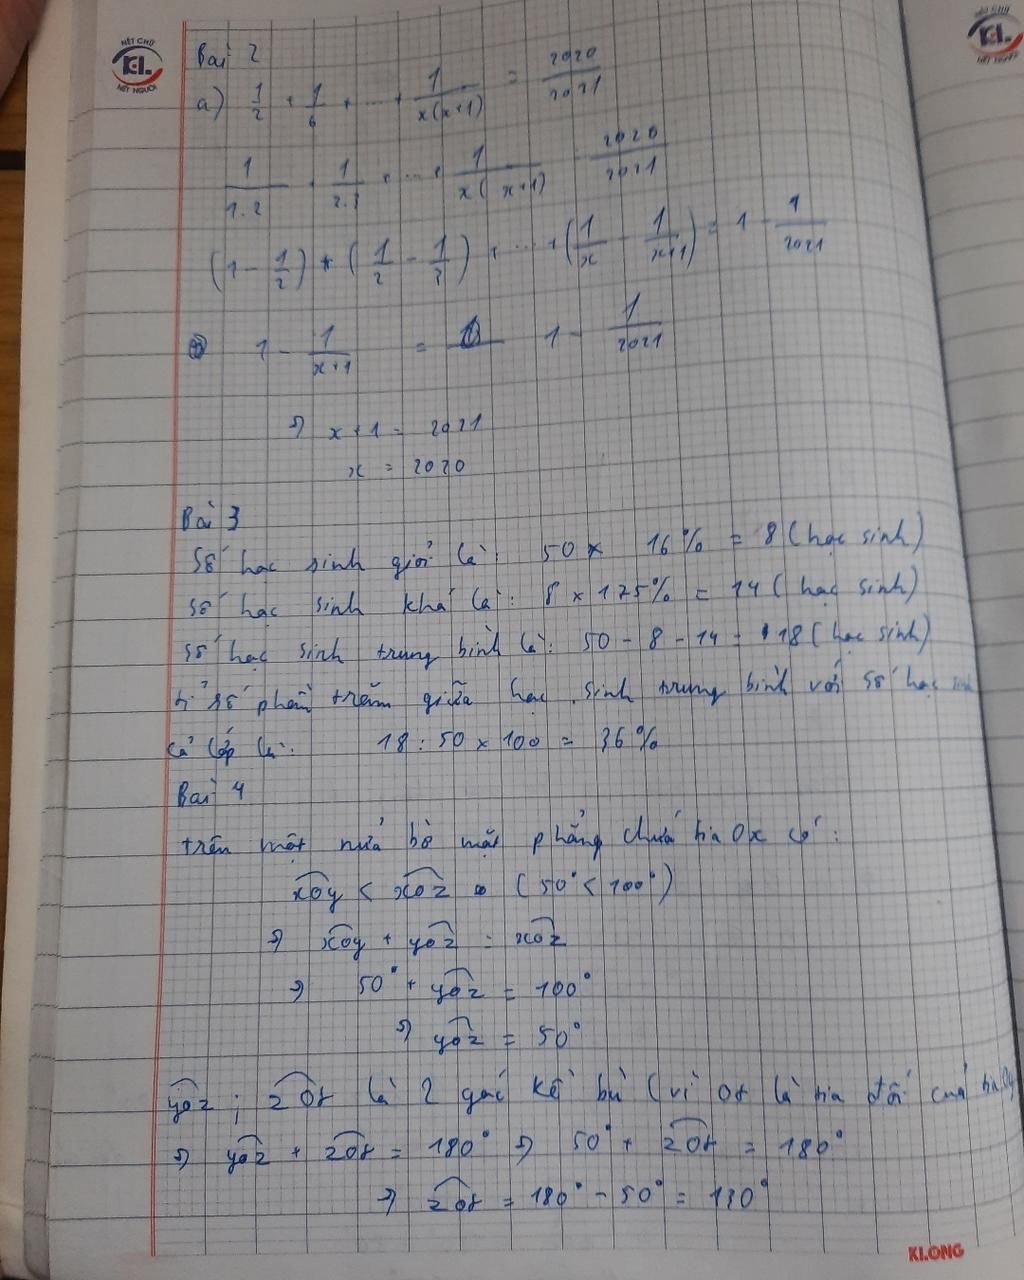 NÉT CHỮ
KL
NẾT NGƯỜI
KL
Bài 2
a) 1/2 + 1/6 + ... + 1/x(x+1) = 2020/2021
1/1.2 + 1/2.3 + ... + 1/x(x+1) = 2020/2021
(1 - 1/2) + (1/2 - 1/3) + ... + (1/x - 1/x+1) = 1 - 1/2021
1 - 1/x+1 = 1 - 1/2021
⇒ x + 1 = 2021
x = 2020
Bài 3
Số học sinh giỏi là: 50 x 16% = 8 (học sinh)
số học sinh khá là: 8 x 175% = 14 (học sinh)
số học sinh trung bình là: 50 - 8 - 14 = 18 (học sinh)
tỉ số phần trăm giữa học sinh trung bình với số học sinh
cả lớp là: 18 : 50 x 100 = 36%
Bài 4
trên một nửa bờ mặt phẳng chứa tia Ox có:
xOy < xOz (50° < 100°)
⇒ xOy + yOz = xOz
⇒ 50° + yOz = 100°
⇒ yOz = 50°
yOz ; zOt là 2 góc kề bù (vì Ot là tia đối của tia Oy
⇒ yOz + zOt = 180° ⇒ 50° + zOt = 180°
⇒ zOt = 180° - 50° = 130°
KLONG